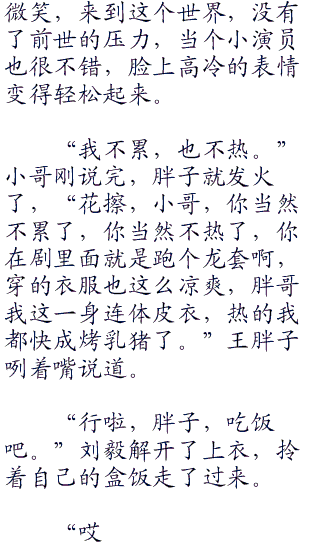 微笑，来到这个世界，没有
了前世的压力，当个小演员
也很不错，脸上高冷的表情
变得轻松起来。
“我不累，也不热。”
小哥刚说完，胖子就发火
了，“花擦，小哥，你当然
不累了，你当然不热了，你
在剧里面就是跑个龙套啊，
穿的衣服也这么凉爽，胖哥
我这一身连体皮衣，热的我
都快成烤乳猪了。”王胖子
咧着嘴说道。
“行啦，胖子，吃饭
吧。”刘毅解开了上衣，拎
着自己的盒饭走了过来。
“哎